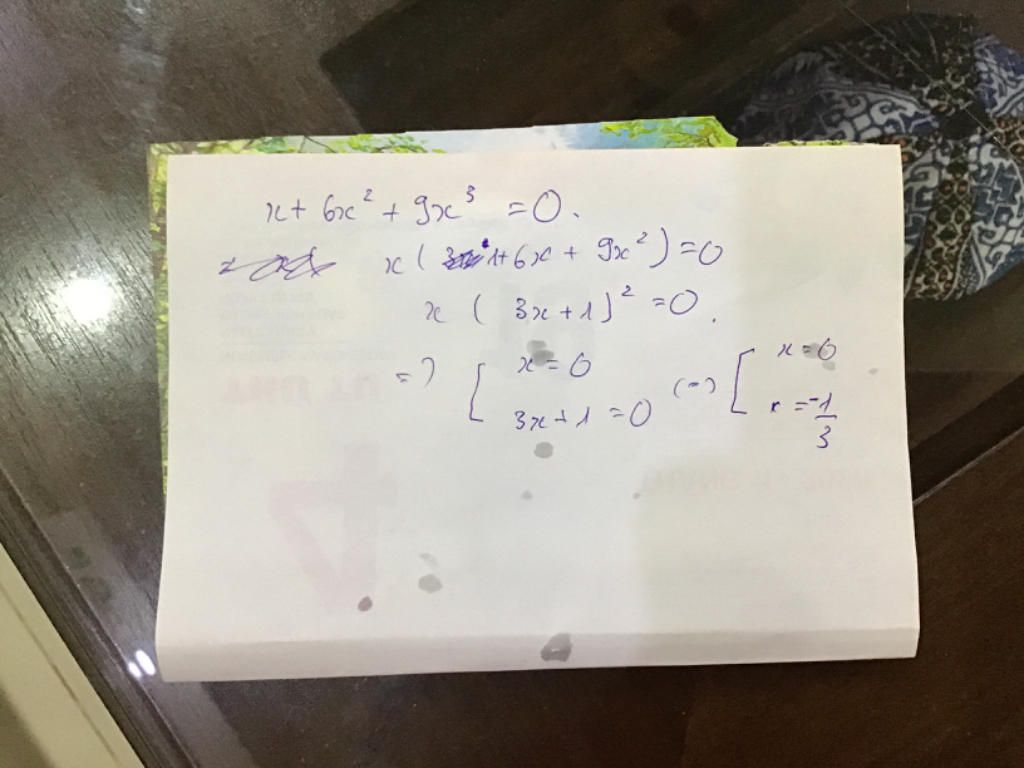 x + 6x² + 9x³ = 0.
x ( 1 + 6x + 9x² ) = 0
x ( 3x + 1 )² = 0.
=> [ x = 0 (=) [ x = 0
3x + 1 = 0 x = -1/3